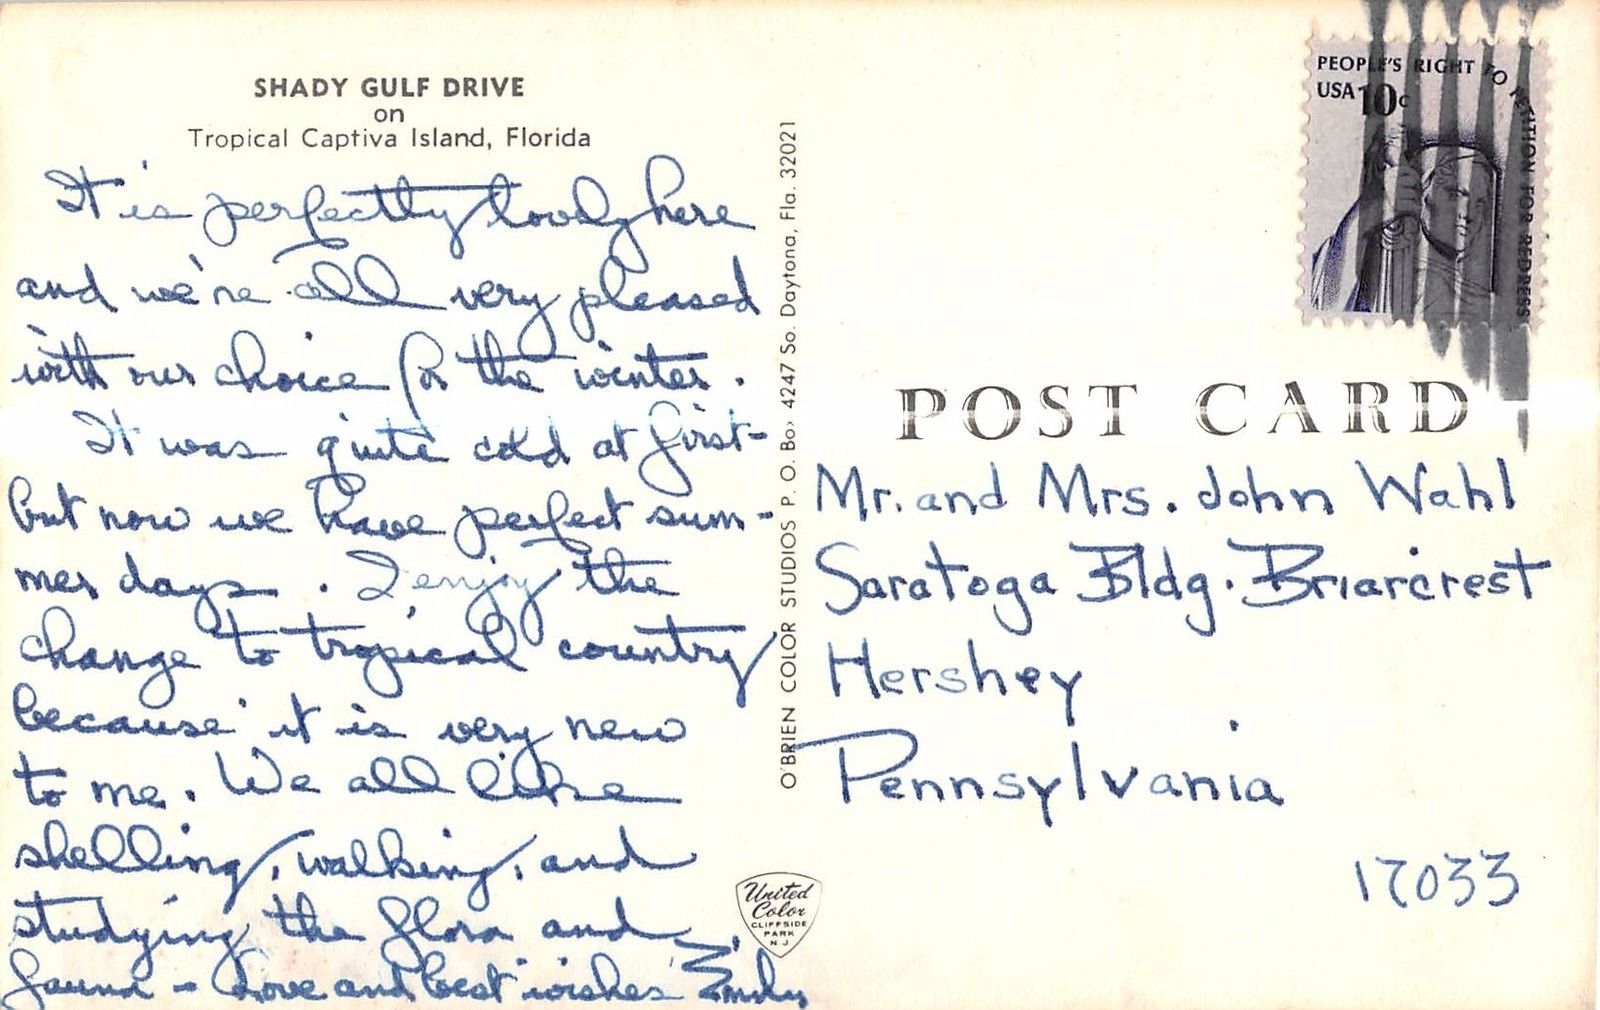 SHADY GULF DRIVE
on
Tropical Captiva Island, Florida
It is perfectly lovely here
and we're all very pleased
with our choice for the winter.
It was quite cold at first-
but now we have perfect sum-
mer days. I enjoy the
change to tropical country
because it is very new
to me. We all like
shelling, walking, and
studying the flora and
fauna - Love and best wishes Emily
O'BRIEN COLOR STUDIOS P. O. Box 4247 So. Daytona, Fla. 32021
United
Color
CLIFFSIDE
PARK
N J
PEOPLE'S RIGHT TO PETITION FOR REDRESS
USA 10c
POST CARD
Mr. and Mrs. John Wahl
Saratoga Bldg. Briarcrest
Hershey
Pennsylvania
17033